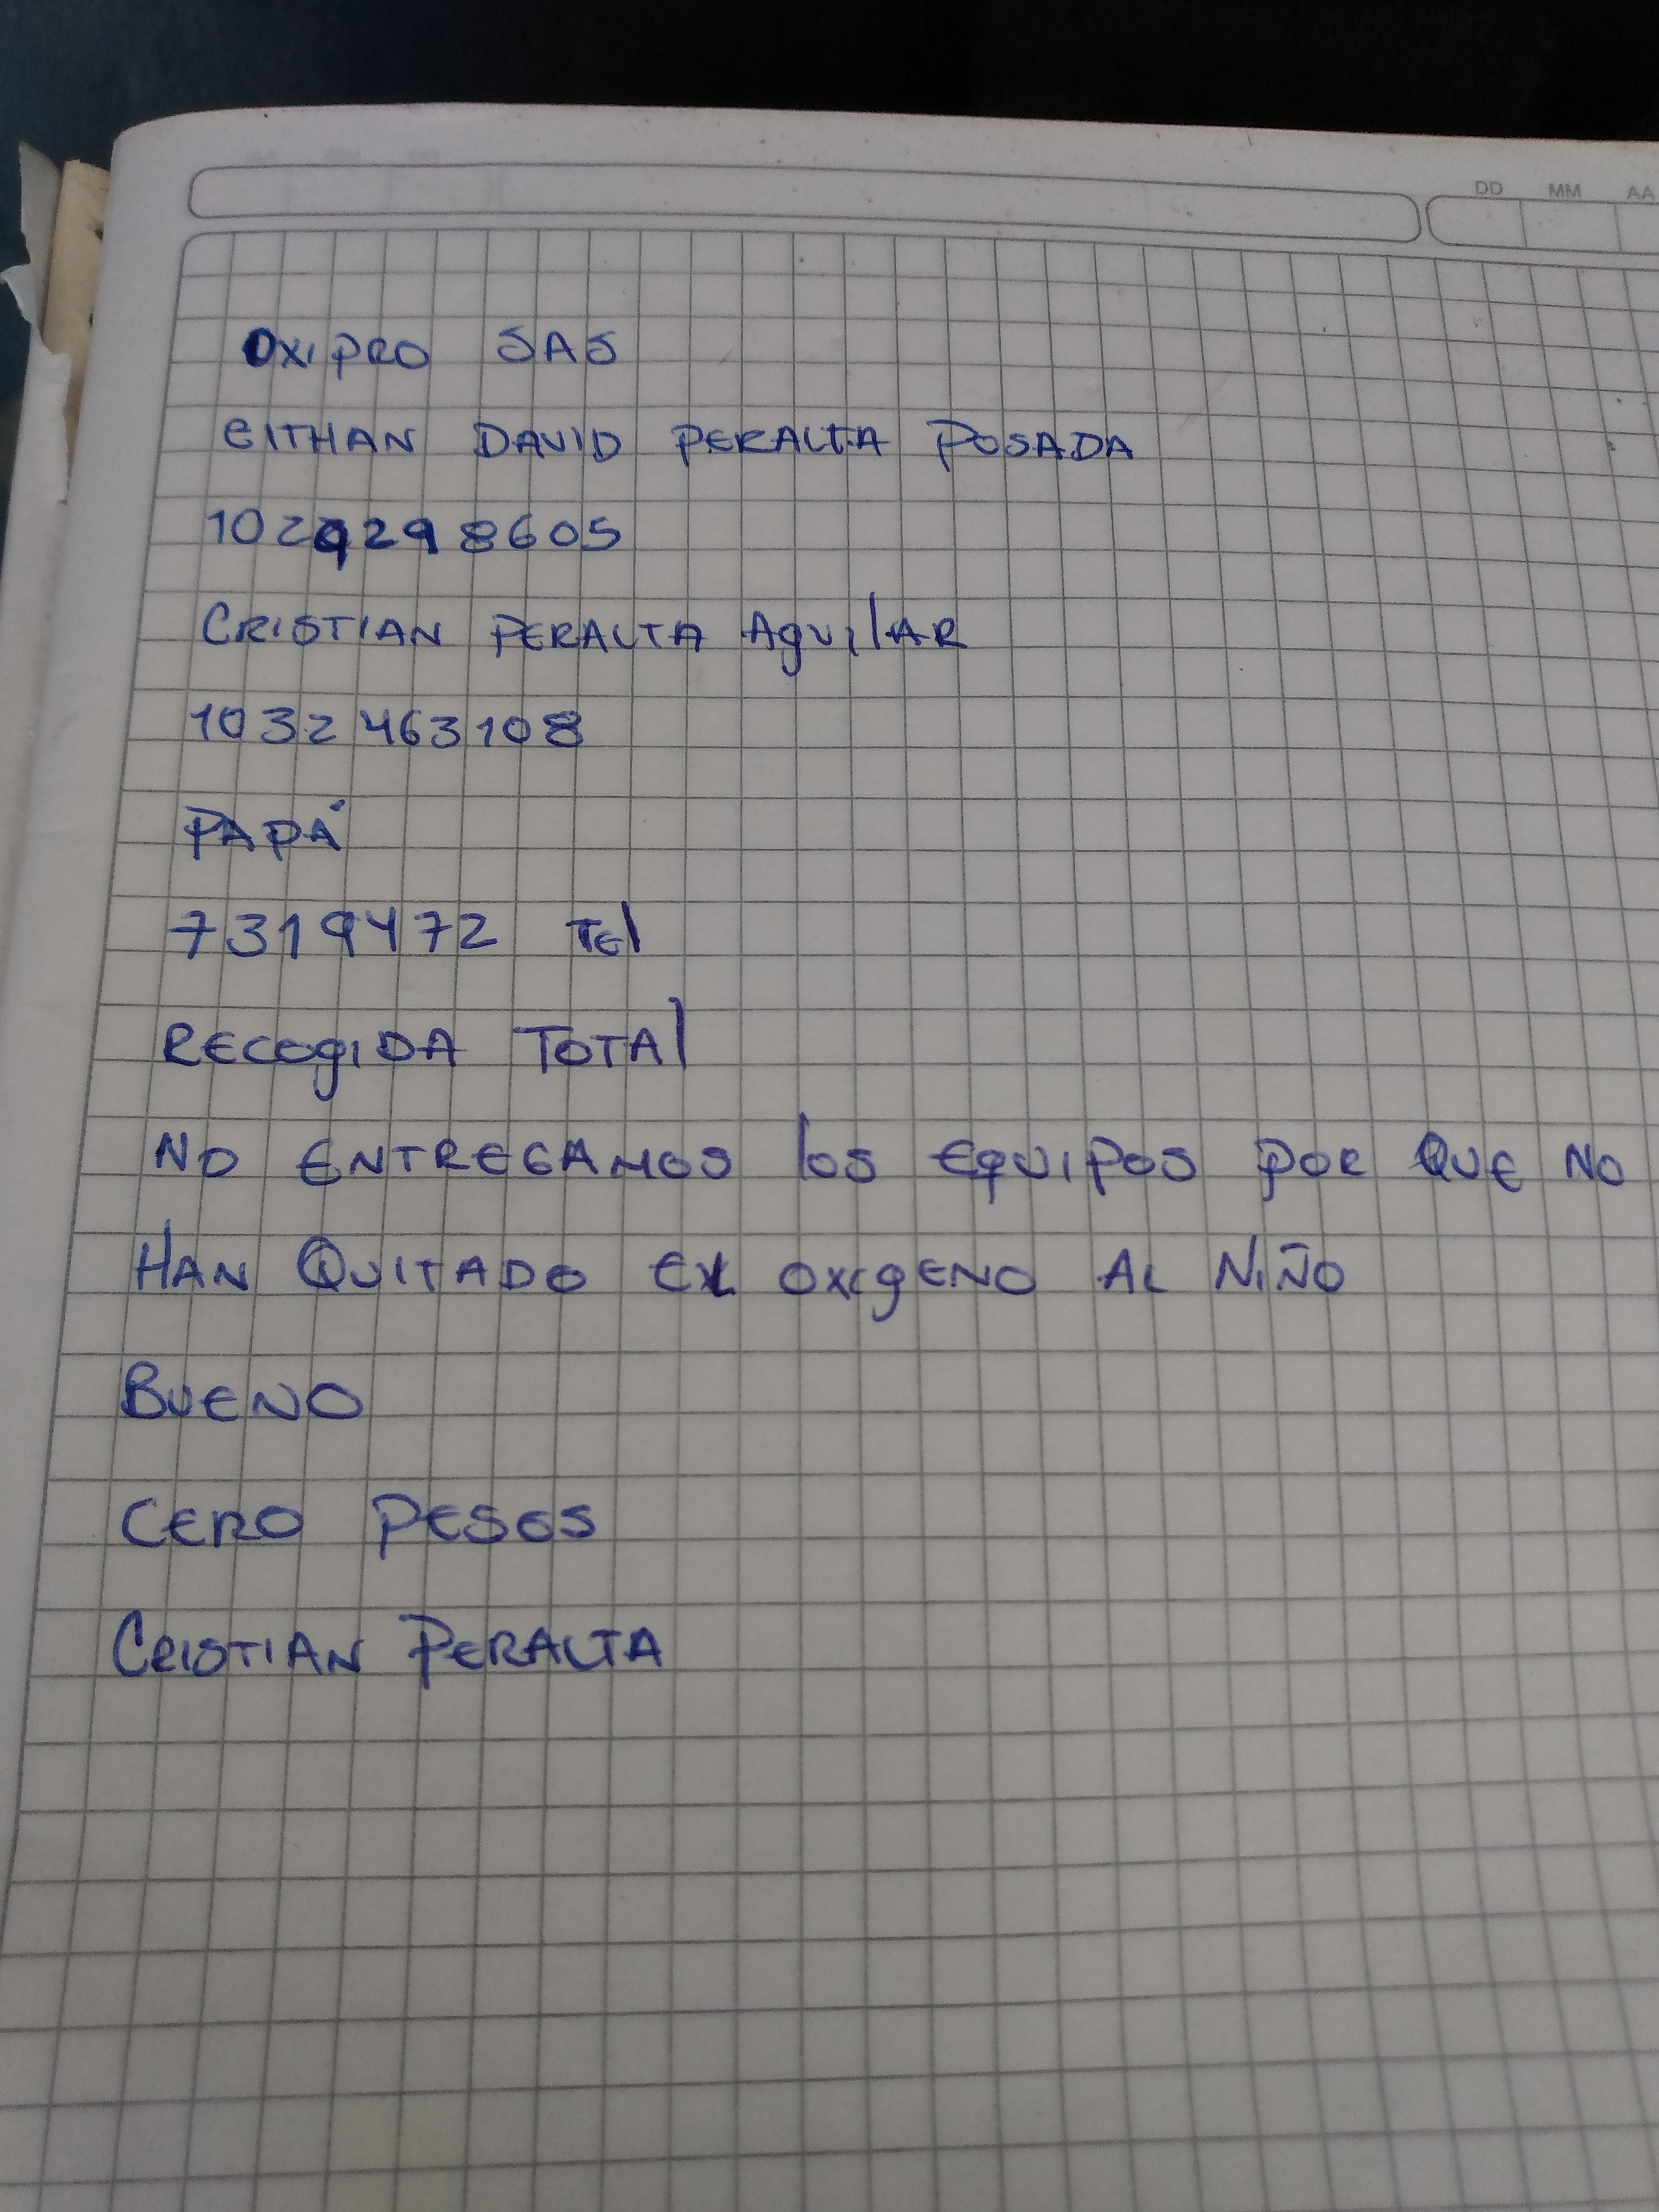 DD MM AA
OXIPRO SAS
EITHAN DAVID PERALTA POSADA
1029298605
CRISTIAN PERALTA AguilAR
1032463108
PAPÁ
7319472 TEl
RECOgIDA TOTAl
NO ENTREGAMOS los EQUIPOS POR QUE NO
HAN QUITADO EL OXIgENO AL NIÑO
BUENO
CERO PESOS
CRISTIAN PERALTA